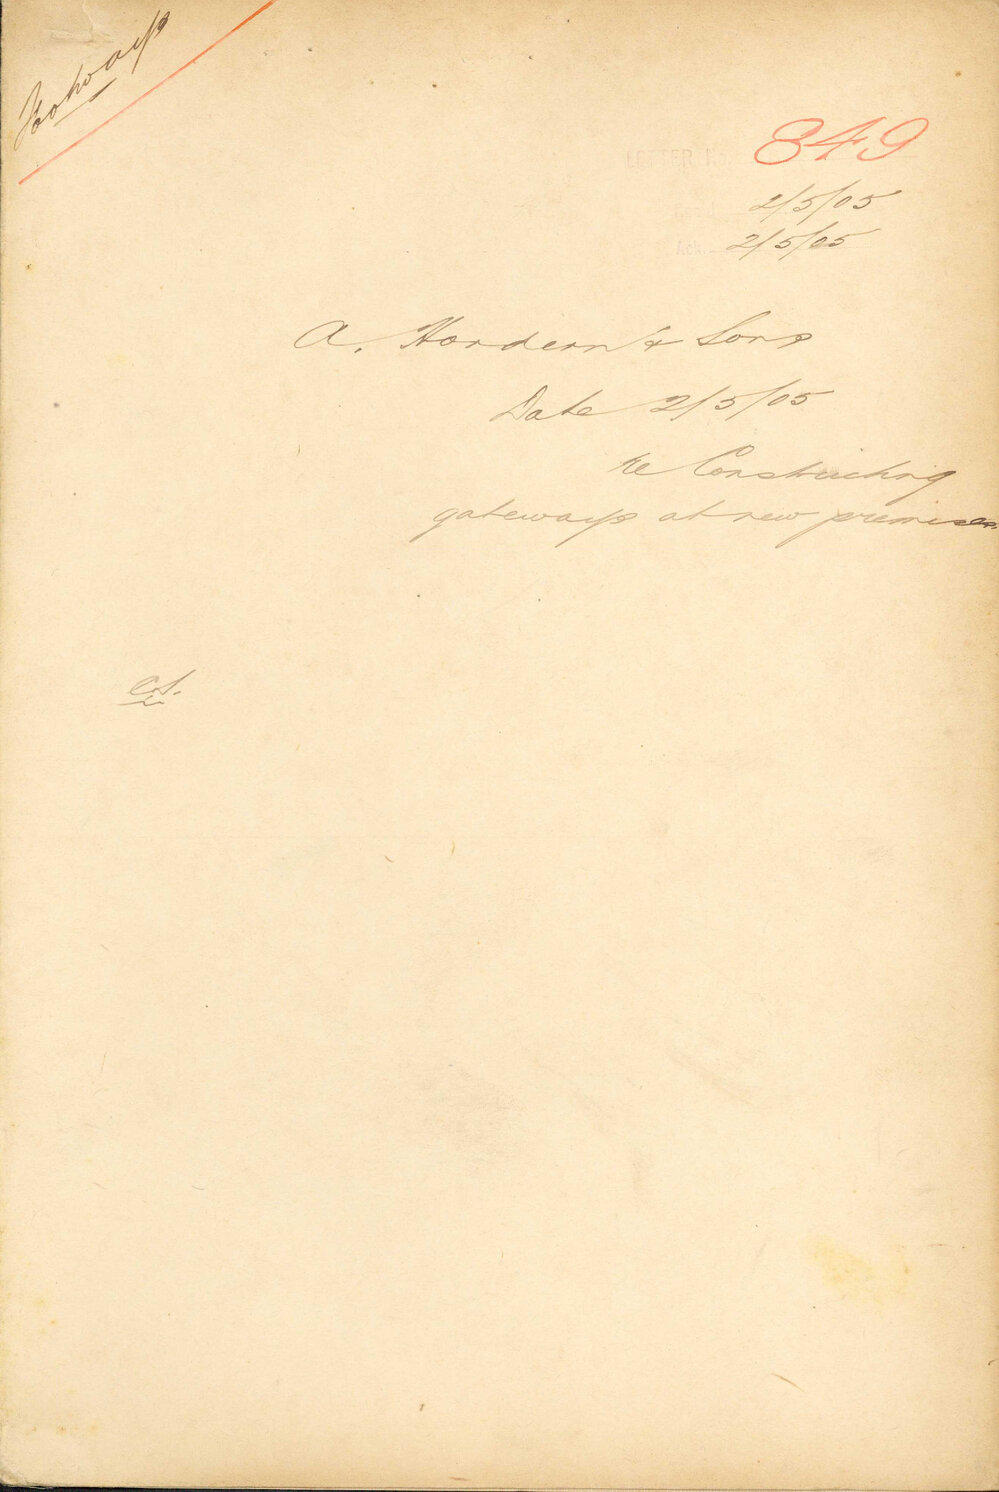 Footways
LETTER No. 849
2/5/05
Ack. 2/5/05
A. Hordern & Sons
Date 2/5/05
re Constructing
gateways at new premises.